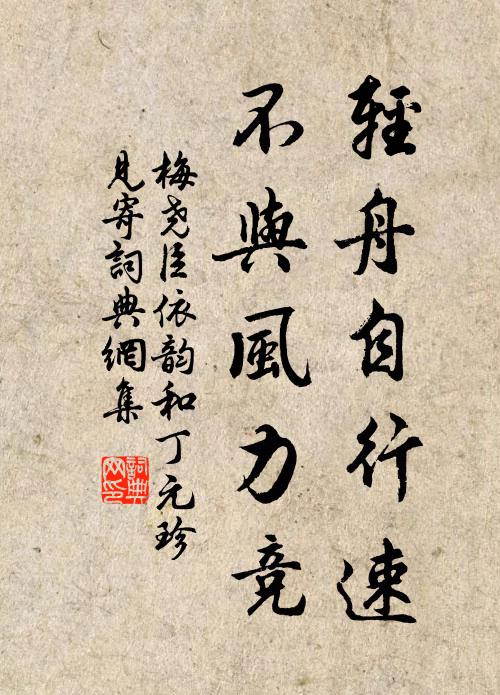 輕舟自行速
不與風力競
梅堯臣依韵和丁元珍
見寄詞典網集
詞典網印